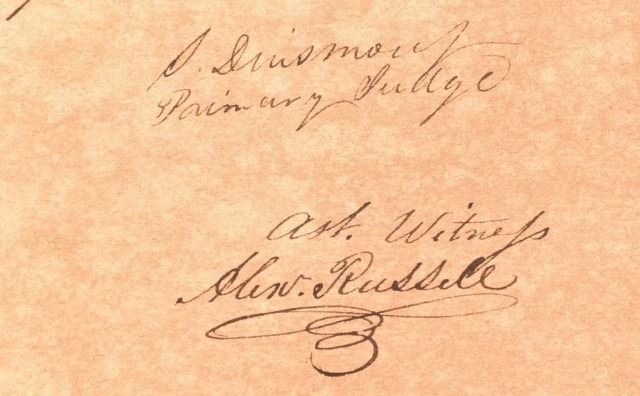 S. Dinsmoor
Primary Judge
Ast. Witness
Alexr. Russell